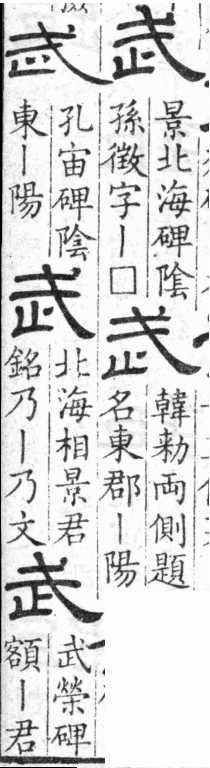 武
景北海碑陰
孫徴字｜□
武
韓勑両側題
名東郡｜陽
武
孔宙碑陰
東｜陽
武
北海相景君
銘乃｜乃文
武
武榮碑
額｜君